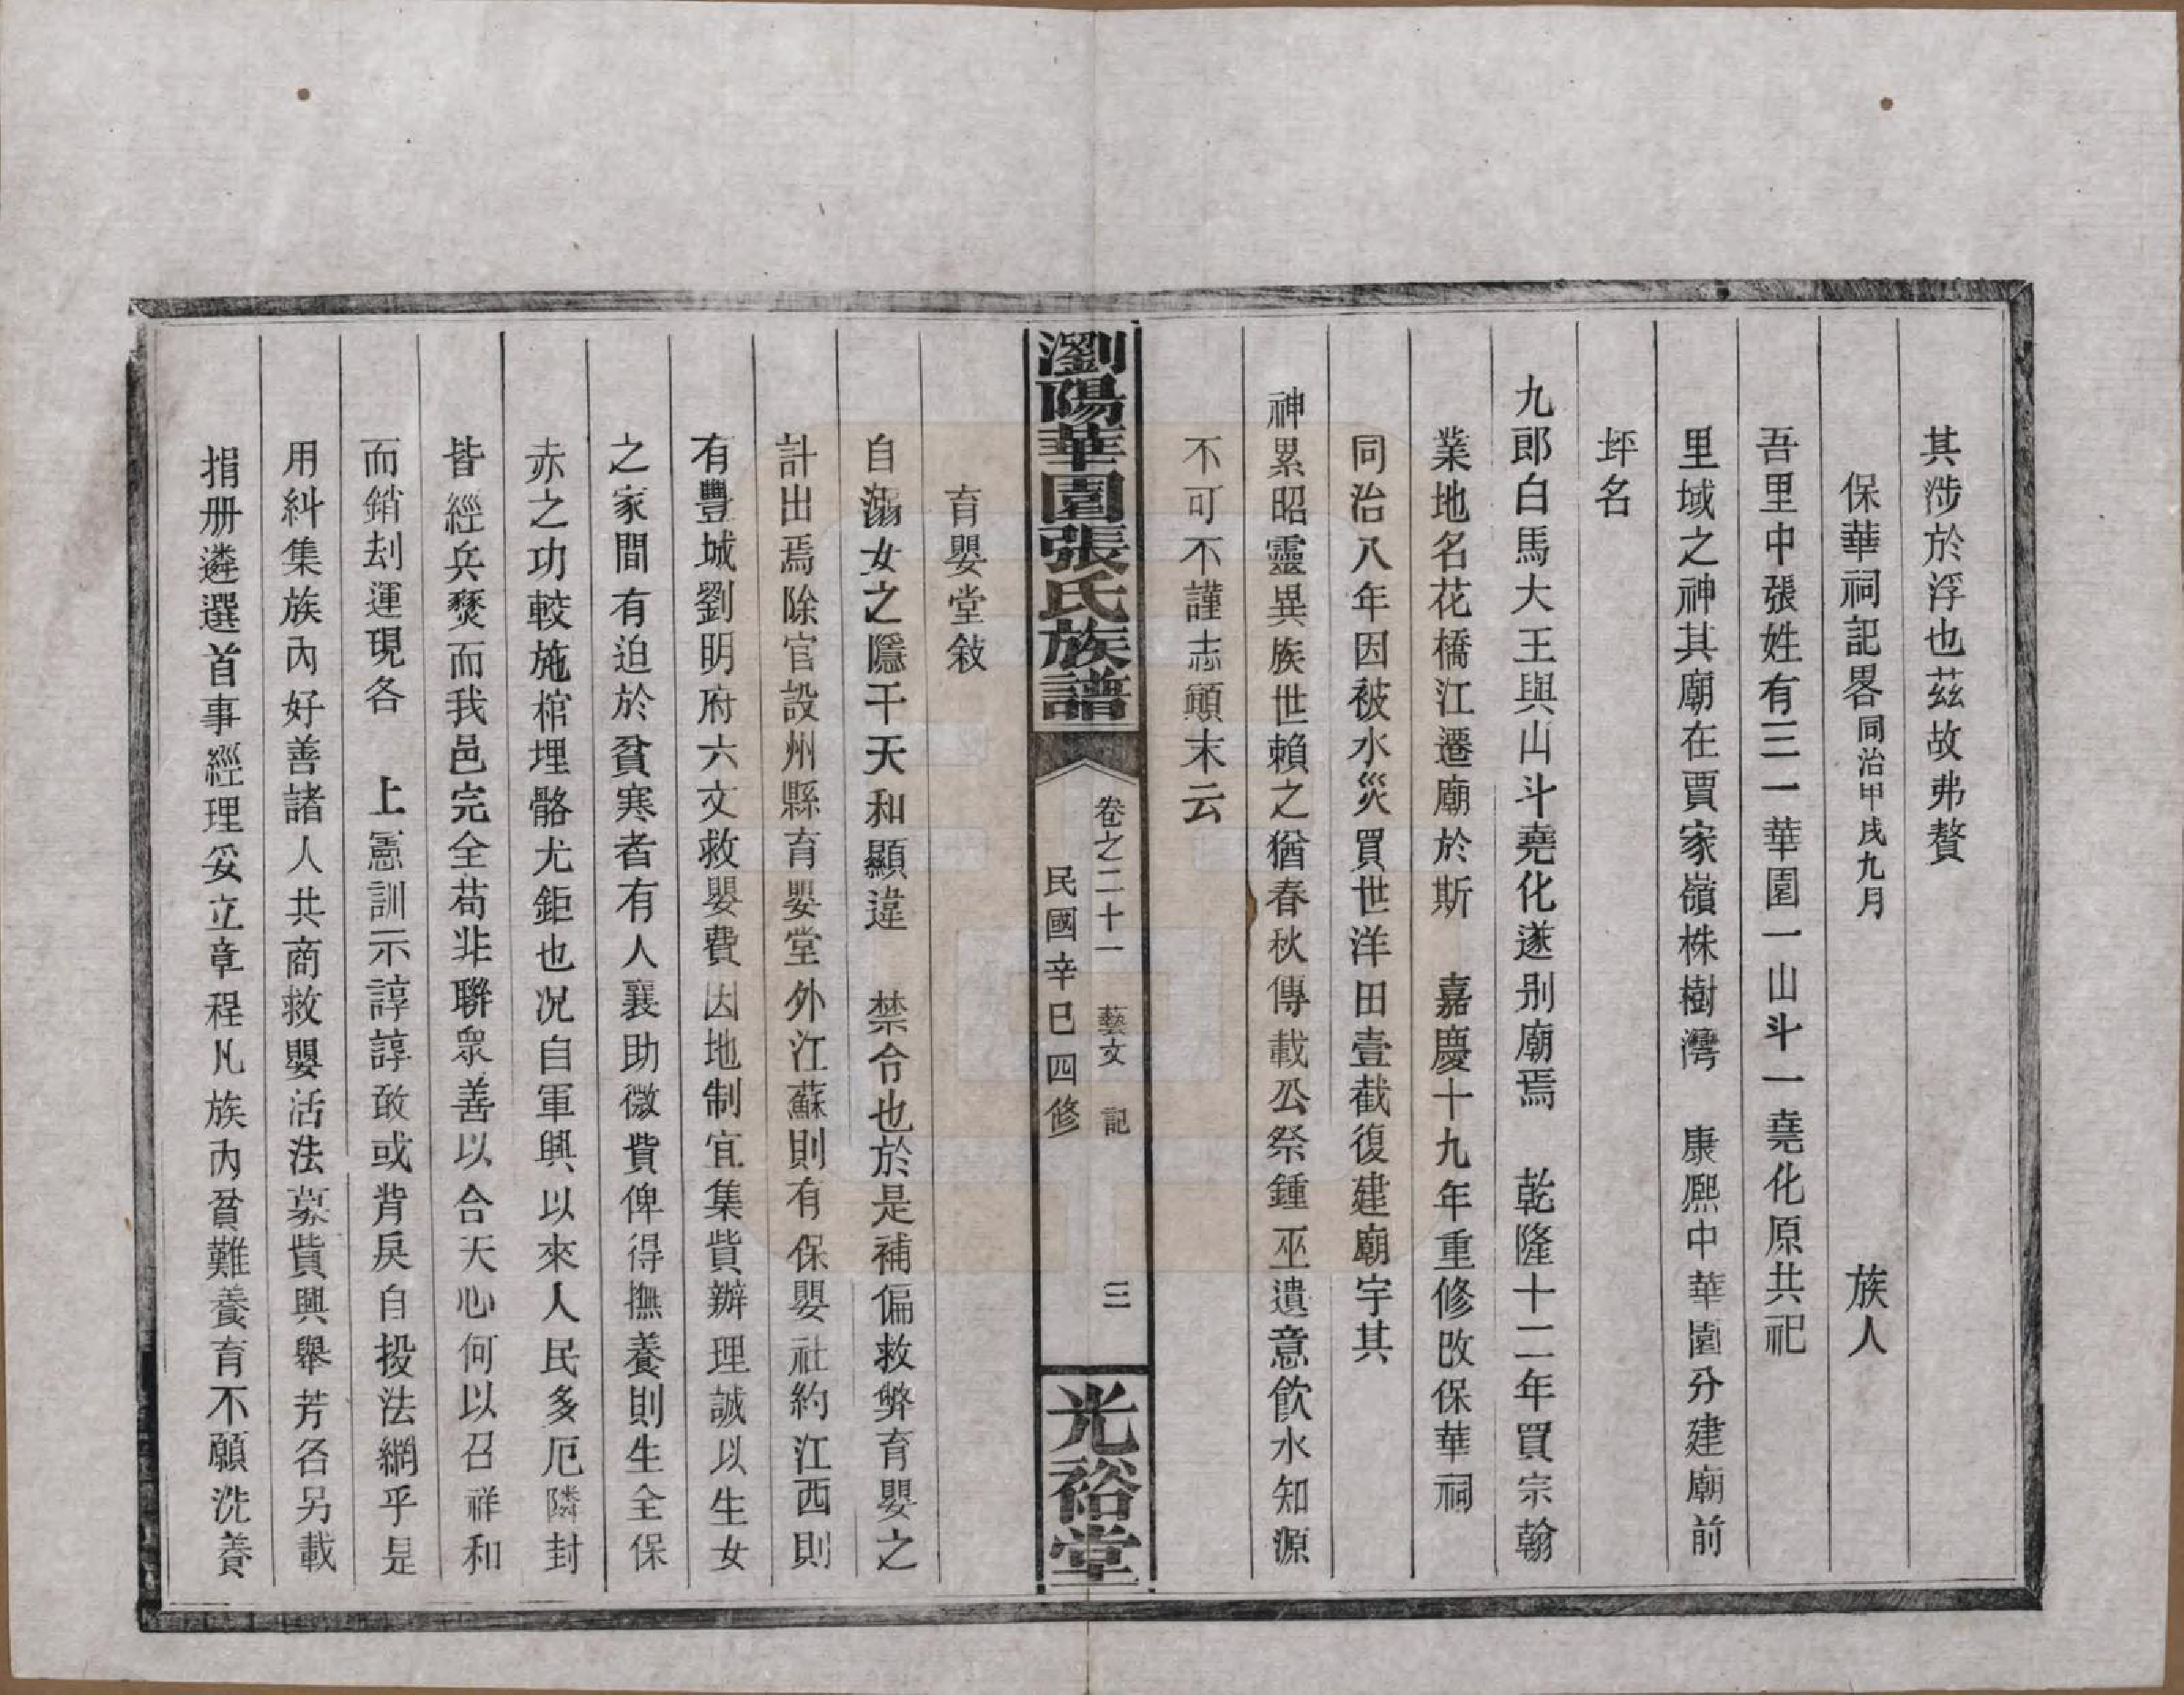 其涉於浮也茲故弗贅
保華祠記畧同治甲戌九月 族人
吾里中張姓有三一華園一山斗一堯化原共祀
里域之神其廟在賈家嶺株樹灣 康熙中華園分建廟前
坪名
九郎白馬大王與山斗堯化遂別廟焉 乾隆十二年買宗翰
業地名花橋江遷廟於斯 嘉慶十九年重修改保華祠
同治八年因被水災買世洋田壹截復建廟宇其
神累昭靈異族世賴之猶春秋傳載公祭鍾巫遺意飲水知源
不可不謹志顚末云
瀏陽華園張氏族譜
卷之二十一 藝文 記 三
民國辛巳四修
光裕堂
育嬰堂敍
自溺女之隱干天和顯違 禁令也於是補偏救弊育嬰之
計出焉除官設州縣育嬰堂外江蘇則有保嬰社約江西則
有豐城劉明府六文救嬰費因地制宜集貲辦理誠以生女
之家間有迫於貧寒者有人襄助微費俾得撫養則生全保
赤之功較施棺埋骼尤鉅也况自軍興以來人民多厄隣封
皆經兵燹而我邑完全苟非聯眾善以合天心何以召祥和
而銷刦運現各 上憲訓示諄諄敢或背戾自投法網乎是
用糾集族內好善諸人共商救嬰活法募貲興舉芳名另載
捐册遴選首事經理妥立章程凡族內貧難養育不願洗養